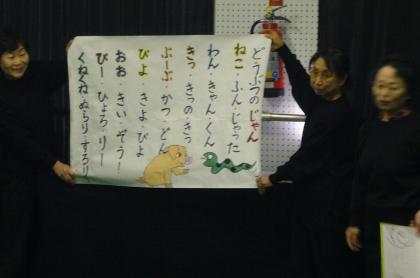 どうぶつのじゃん
ねこ・ふんじゃった
わん・きゃん・くん
きっ・きっのきっ
ぶーぶ・かつ・どん
ぴよ・きよ・ぴよ
おお・きい・ぞう!
ぴー・ひょろ・りー
くねくねぬらりすろり